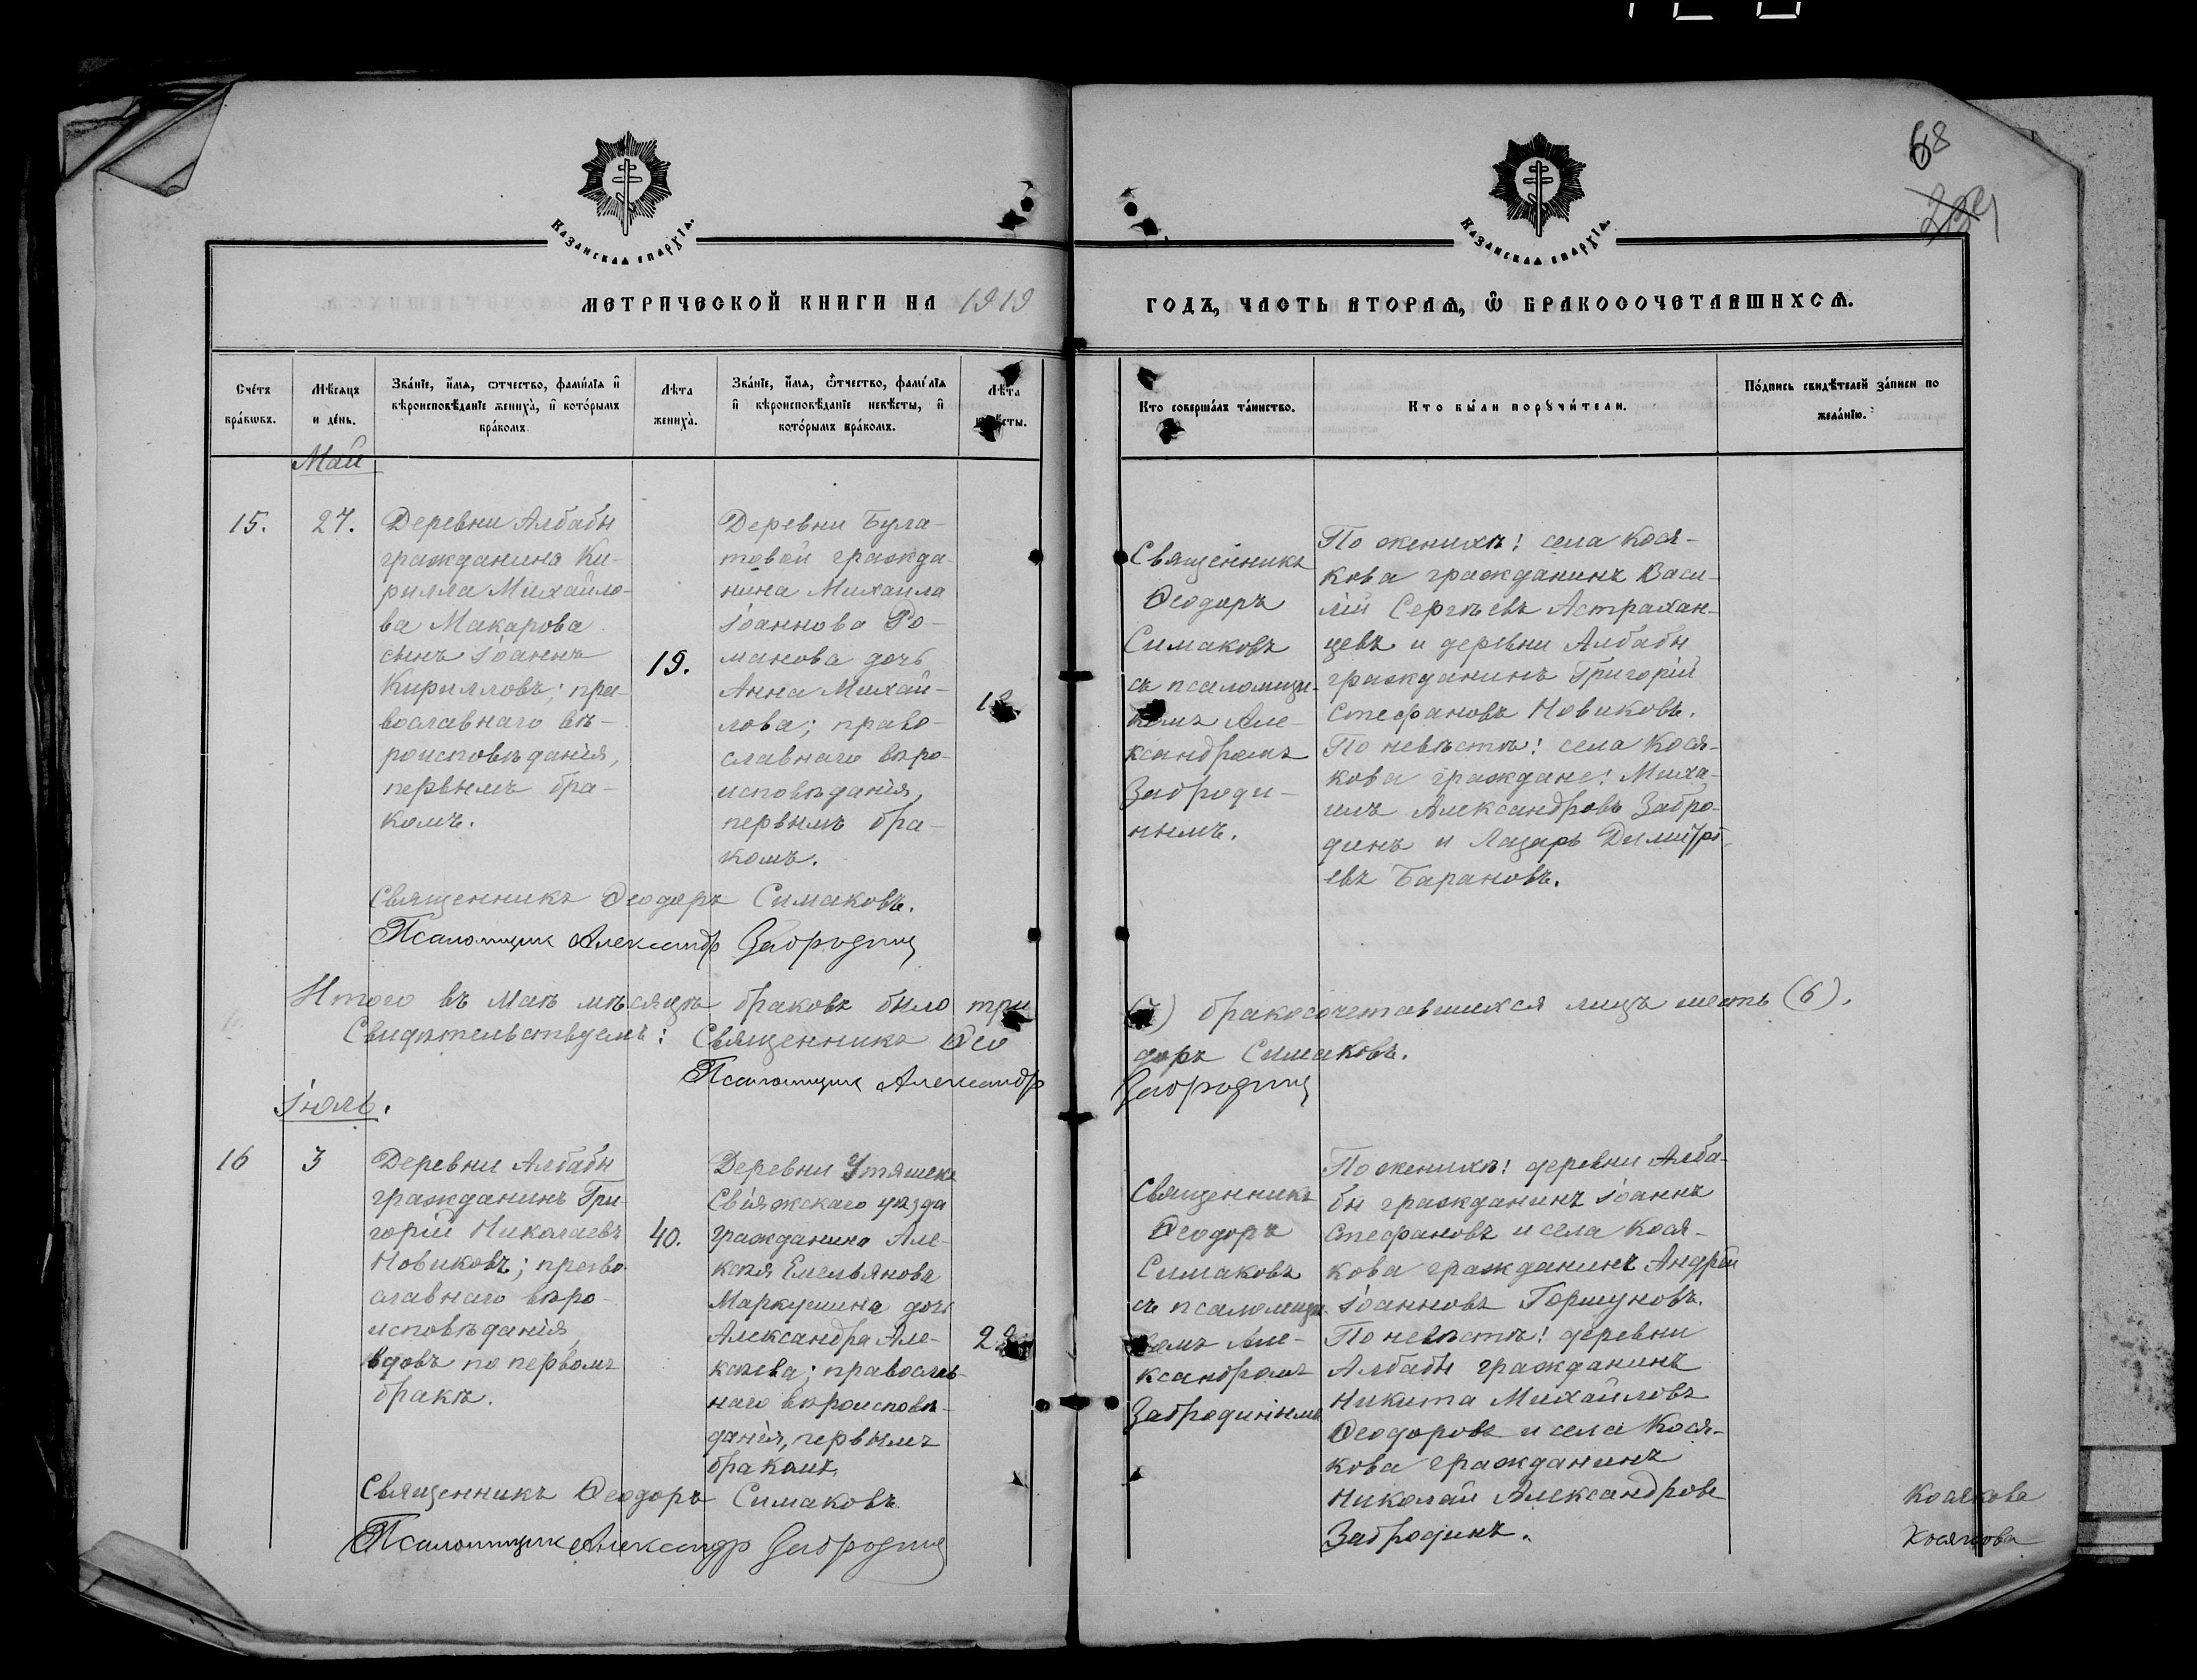 68
Казанская епархїѧ.
Казанская епархїѧ.
МЕТРИЧЕСКОЙ КНИГИ НА 1919
ГОДЪ, ЧАСТЬ ВТОРАѦ, Ѽ БРАКОСОЧЕТАВШИХСѦ.
Счётъ бра́кѡвъ.
Мѣ́сяцъ и де́нь.
Зва́нїе, и҆́мѧ, ѻ҆́тчество, фами́лїѧ и҆ вѣроисповѣ́данїе жениха̀, и҆ кото́рымъ бра́комъ.
Лѣ́та жениха̀.
Зва́нїе, и҆́мѧ, ѻ҆́тчество, фами́лїѧ и҆ вѣроисповѣ́данїе невѣ́сты, и҆ кото́рымъ бра́комъ.
Лѣ́та невѣ́сты.
Кто̀ соверша́лъ та́инство.
Кто̀ бы́ли порꙋчи́тели.
По́дпись свидѣ́телей за́писи по жела́нїю.
Май
15.
27.
Деревни Албабы
гражданина Ки-
рилла Михайло-
ва Макарова
сынъ Іоаннъ
Кирилловъ; пра-
вославнаго вѣ-
роисповѣданія,
первымъ бра-
комъ.
19.
Деревни Була-
товой гражда-
нина Михаила
Іоаннова Ро-
манова дочь
Анна Михай-
лова; право-
славнаго вѣро-
исповѣданія,
первымъ бра-
комъ.
Священникъ
Ѳеодоръ
Симаковъ
съ псаломщи-
комъ Але-
ксандромъ
Забродин-
нымъ.
По женихѣ: села Кося-
кова гражданинъ Васи-
лій Сергѣевъ Астрахан-
цевъ и деревни Албабы
гражданинъ Григорій
Стефановъ Новиковъ.
По невѣстѣ: села Кося-
кова граждане: Миха-
илъ Александровъ Забро-
динъ и Лазарь Димитрі-
евъ Барановъ.
Священникъ Ѳеодоръ Симаковъ.
Псаломщик Александр Забродин
Итого въ Маѣ мѣсяцѣ браковъ было три
бракосочетавшихся лицъ шесть (6).
Свидѣтельствуемъ: Священникъ Ѳео
доръ Симаковъ.
Псаломщик Александр
Забродин
Іюль.
16
3
Деревни Албабы
гражданинъ Гри-
горій Николаевъ
Новиковъ; право-
славнаго вѣро-
исповѣданія,
вдовъ по первомъ
бракѣ.
40.
Деревни Утяшекъ
Свіяжскаго уѣзда
гражданина Але-
ксѣя Емельянова
Маркушина дочь
Александра Але-
ксѣева; православ-
наго вѣроисповѣ-
данія, первымъ
бракомъ.
Священникъ
Ѳеодоръ
Симаковъ
съ псаломщи-
комъ Але-
ксандромъ
Забродинымъ
По женихѣ: деревни Алба-
бы гражданинъ Іоаннъ
Стефановъ и села Кося-
кова гражданинъ Андрей
Іоанновъ Горшуновъ.
По невѣстѣ: деревни
Албабы гражданинъ
Никита Михайловъ
Ѳеодоровъ и села Кося-
кова гражданинъ
Николай Александровъ
Забродинъ.
Священникъ Ѳеодоръ Симаковъ
Псаломщик Александр Забродин
Косякова
Косякова